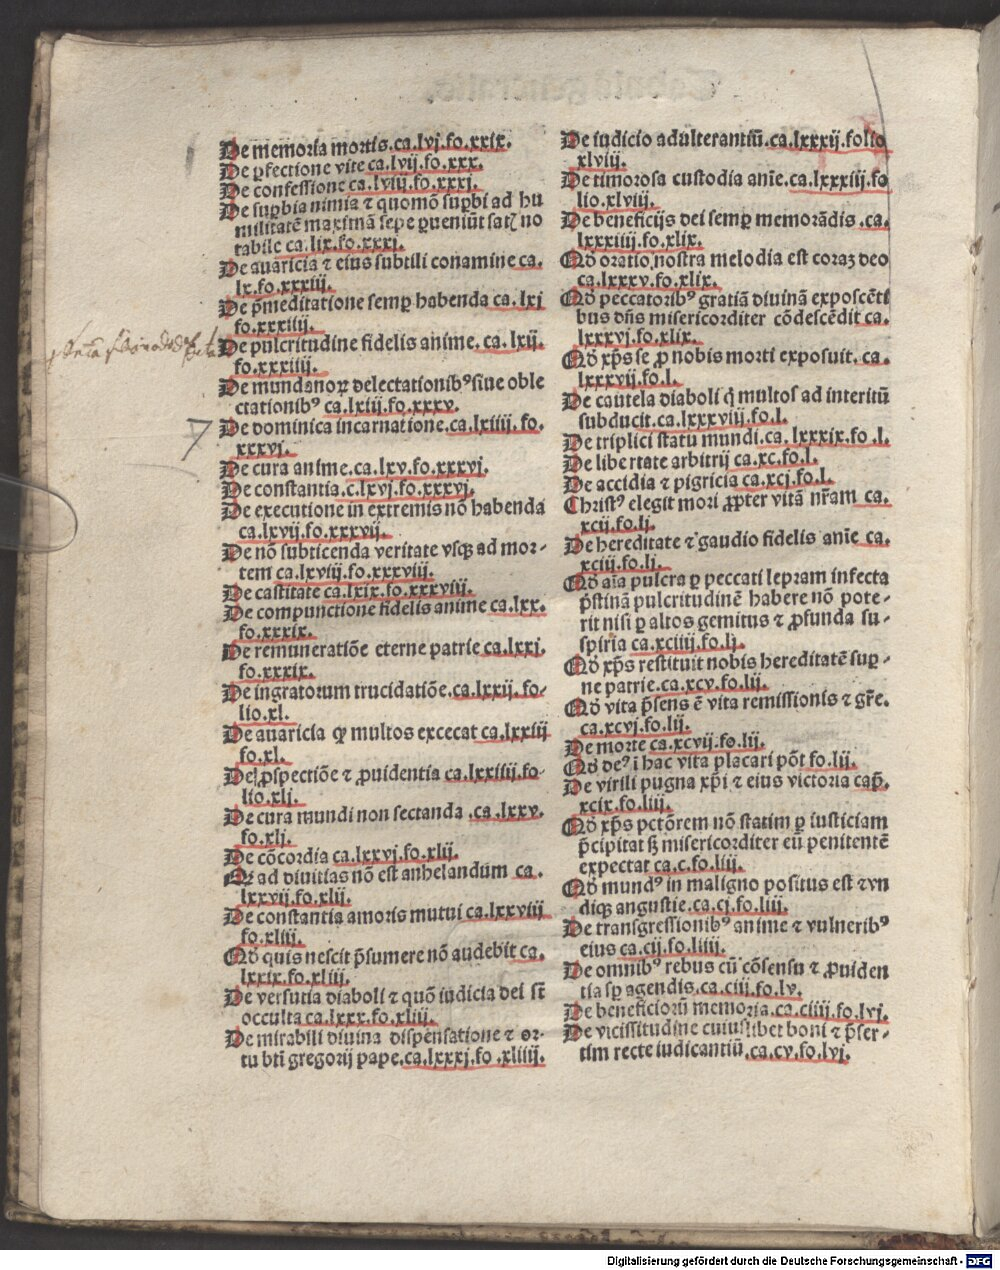 De memoria mortis.ca.lvj.fo.xxix.
De ꝑfectione vite ca.lvij.fo.xxx.
De confessione ca.lviij.fo.xxxj.
De suꝑbia nimia ⁊ quomō suꝑbi ad hu
militatē maximā sepe ꝓueniūt satꝭ no
tabile ca.lix.fo.xxxj.
De auaricia ⁊ eius subtili conamine ca.
lx.fo.xxxiij.
De p̄meditatione semꝑ habenda ca.lxj
fo.xxxiiij.
De pulcritudine fidelis anime.ca.lxij.
fo.xxxiiij.
De mundanoꝝ delectationibꝰ siue oble
ctationibꝰ ca.lxiij.fo.xxxv.
De dominica incarnatione.ca.lxiiij.fo.
xxxvj.
De cura anime.ca.lxv.fo.xxxvj.
De constantia.c.lxvj.fo.xxxvj.
De executione in extremis nō habenda
ca.lxvij.fo.xxxvij.
De nō subticenda veritate vsqꝫ ad mor-
tem ca.lxviij.fo.xxxviij.
De castitate ca.lxix.fo.xxxviij.
De compunctione fidelis anime ca.lxx.
fo.xxxix.
De remuneratiōe eterne patrie ca.lxxj.
fo.xxxix.
De ingratorum trucidatiōe.ca.lxxij.fo-
lio.xl.
De auaricia ꝙ multos excecat ca.lxxiij
fo.xl.
De ꝓspectiōe ⁊ ꝓuidentia ca.lxxiiij.fo-
lio.xlj.
De cura mundi non sectanda .ca.lxxv.
fo.xlj.
De cōcordia ca.lxxvj.fo.xlij.
Qꝙ ad diuitias nō est anhelandum ca.
lxxvij.fo.xlij.
De constantia amoris mutui ca.lxxviij
fo.xliij.
Qō quis nescit p̄sumere nō audebit ca.
lxxix.fo.xliij.
De versutia diaboli ⁊ quō iudicia dei st̄
occulta ca.lxxx.fo.xliij.
De mirabili diuina dispensatione ⁊ or-
tu bt̄i gregorij pape.ca.lxxxj.fo.xliiij.
De iudicio adulterantiū.ca.lxxxij.folio
xlviij.
De timorosa custodia aīe.ca.lxxxiij.fo
lio.xlviij.
De beneficijs dei semꝑ memorādis .ca.
lxxxiiij.fo.xlix.
Qō oratio nostra melodia est coraꝫ deo
ca.lxxxv.fo.xlix.
Qō peccatoribꝰ gratiā diuinā exposcēti
bus dn̄s misericorditer cōdescēdit ca.
lxxxvj.fo.xlix.
Qō xp̄s se ꝓ nobis morti exposuit. ca.
lxxxvij.fo.l.
De cautela diaboli q̄ multos ad interitū
subducit.ca.lxxxviij.fo.l.
De triplici statu mundi.ca.lxxxix.fo.l.
De libertate arbitrij ca.xc.fo.l.
De accidia ⁊ pigricia ca.xcj.fo.l.
Christꝰ elegit mori ꝓpter vitā nr̄am ca.
xcij.fo.lj.
De hereditate ⁊ gaudio fidelis aīe ca.
xciij.fo.lj.
Qō aīa pulcra ꝑ peccati lepram infecta
p̄stinā pulcritudinē habere nō pote-
rit nisi ꝑ altos gemitus ⁊ ꝓfunda su-
spiria ca.xciiij.fo.lj.
Qō xp̄s restituit nobis hereditatē suꝑ-
ne patrie.ca.xcv.fo.lij.
Qō vita p̄sens ē vita remissionis ⁊ gr̄e.
ca.xcvj.fo.lij.
De morte ca.xcvij.fo.lij.
Qō deꝰ ī hac vita placari pōt fo.lij.
De virili pugna xp̄i ⁊ eius victoria cap̄.
xcix.fo.liij.
Qō xp̄s pctōrem nō statim ꝑ iusticiam
p̄cipitat sꝫ misericorditer eū penitentē
expectat ca.c.fo.liij.
Qō mundꝰ in maligno positus est ⁊ vn
diqꝫ angustie.ca.cj.fo.liij.
De transgressionibꝰ anime ⁊ vulneribꝰ
eius ca.cij.fo.liiij.
De omnibꝰ rebus cū cōsensu ⁊ ꝓuiden
tia sꝑ agendis.ca.ciij.fo.lv.
De beneficiorū memoria.ca.ciiij.fo.lvj.
De vicissitudine cuiuslibet boni ⁊ p̄ser-
tim recte iudicantiū.ca.cv.fo.lvj.
Digitalisierung gefördert durch die Deutsche Forschungsgemeinschaft - DFG